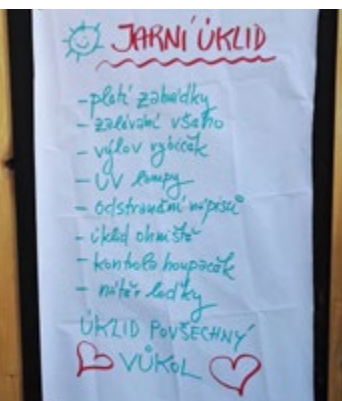 JARNÍ ÚKLID
- pletí zahrádky
- zalévání všeho
- výlov rybiček
- UV lampy
- odstranění nápisů
- úklid ohniště
- kontrola houpaček
- nátěr loďky
ÚKLID POVŠECHNÝ
VŮKOL